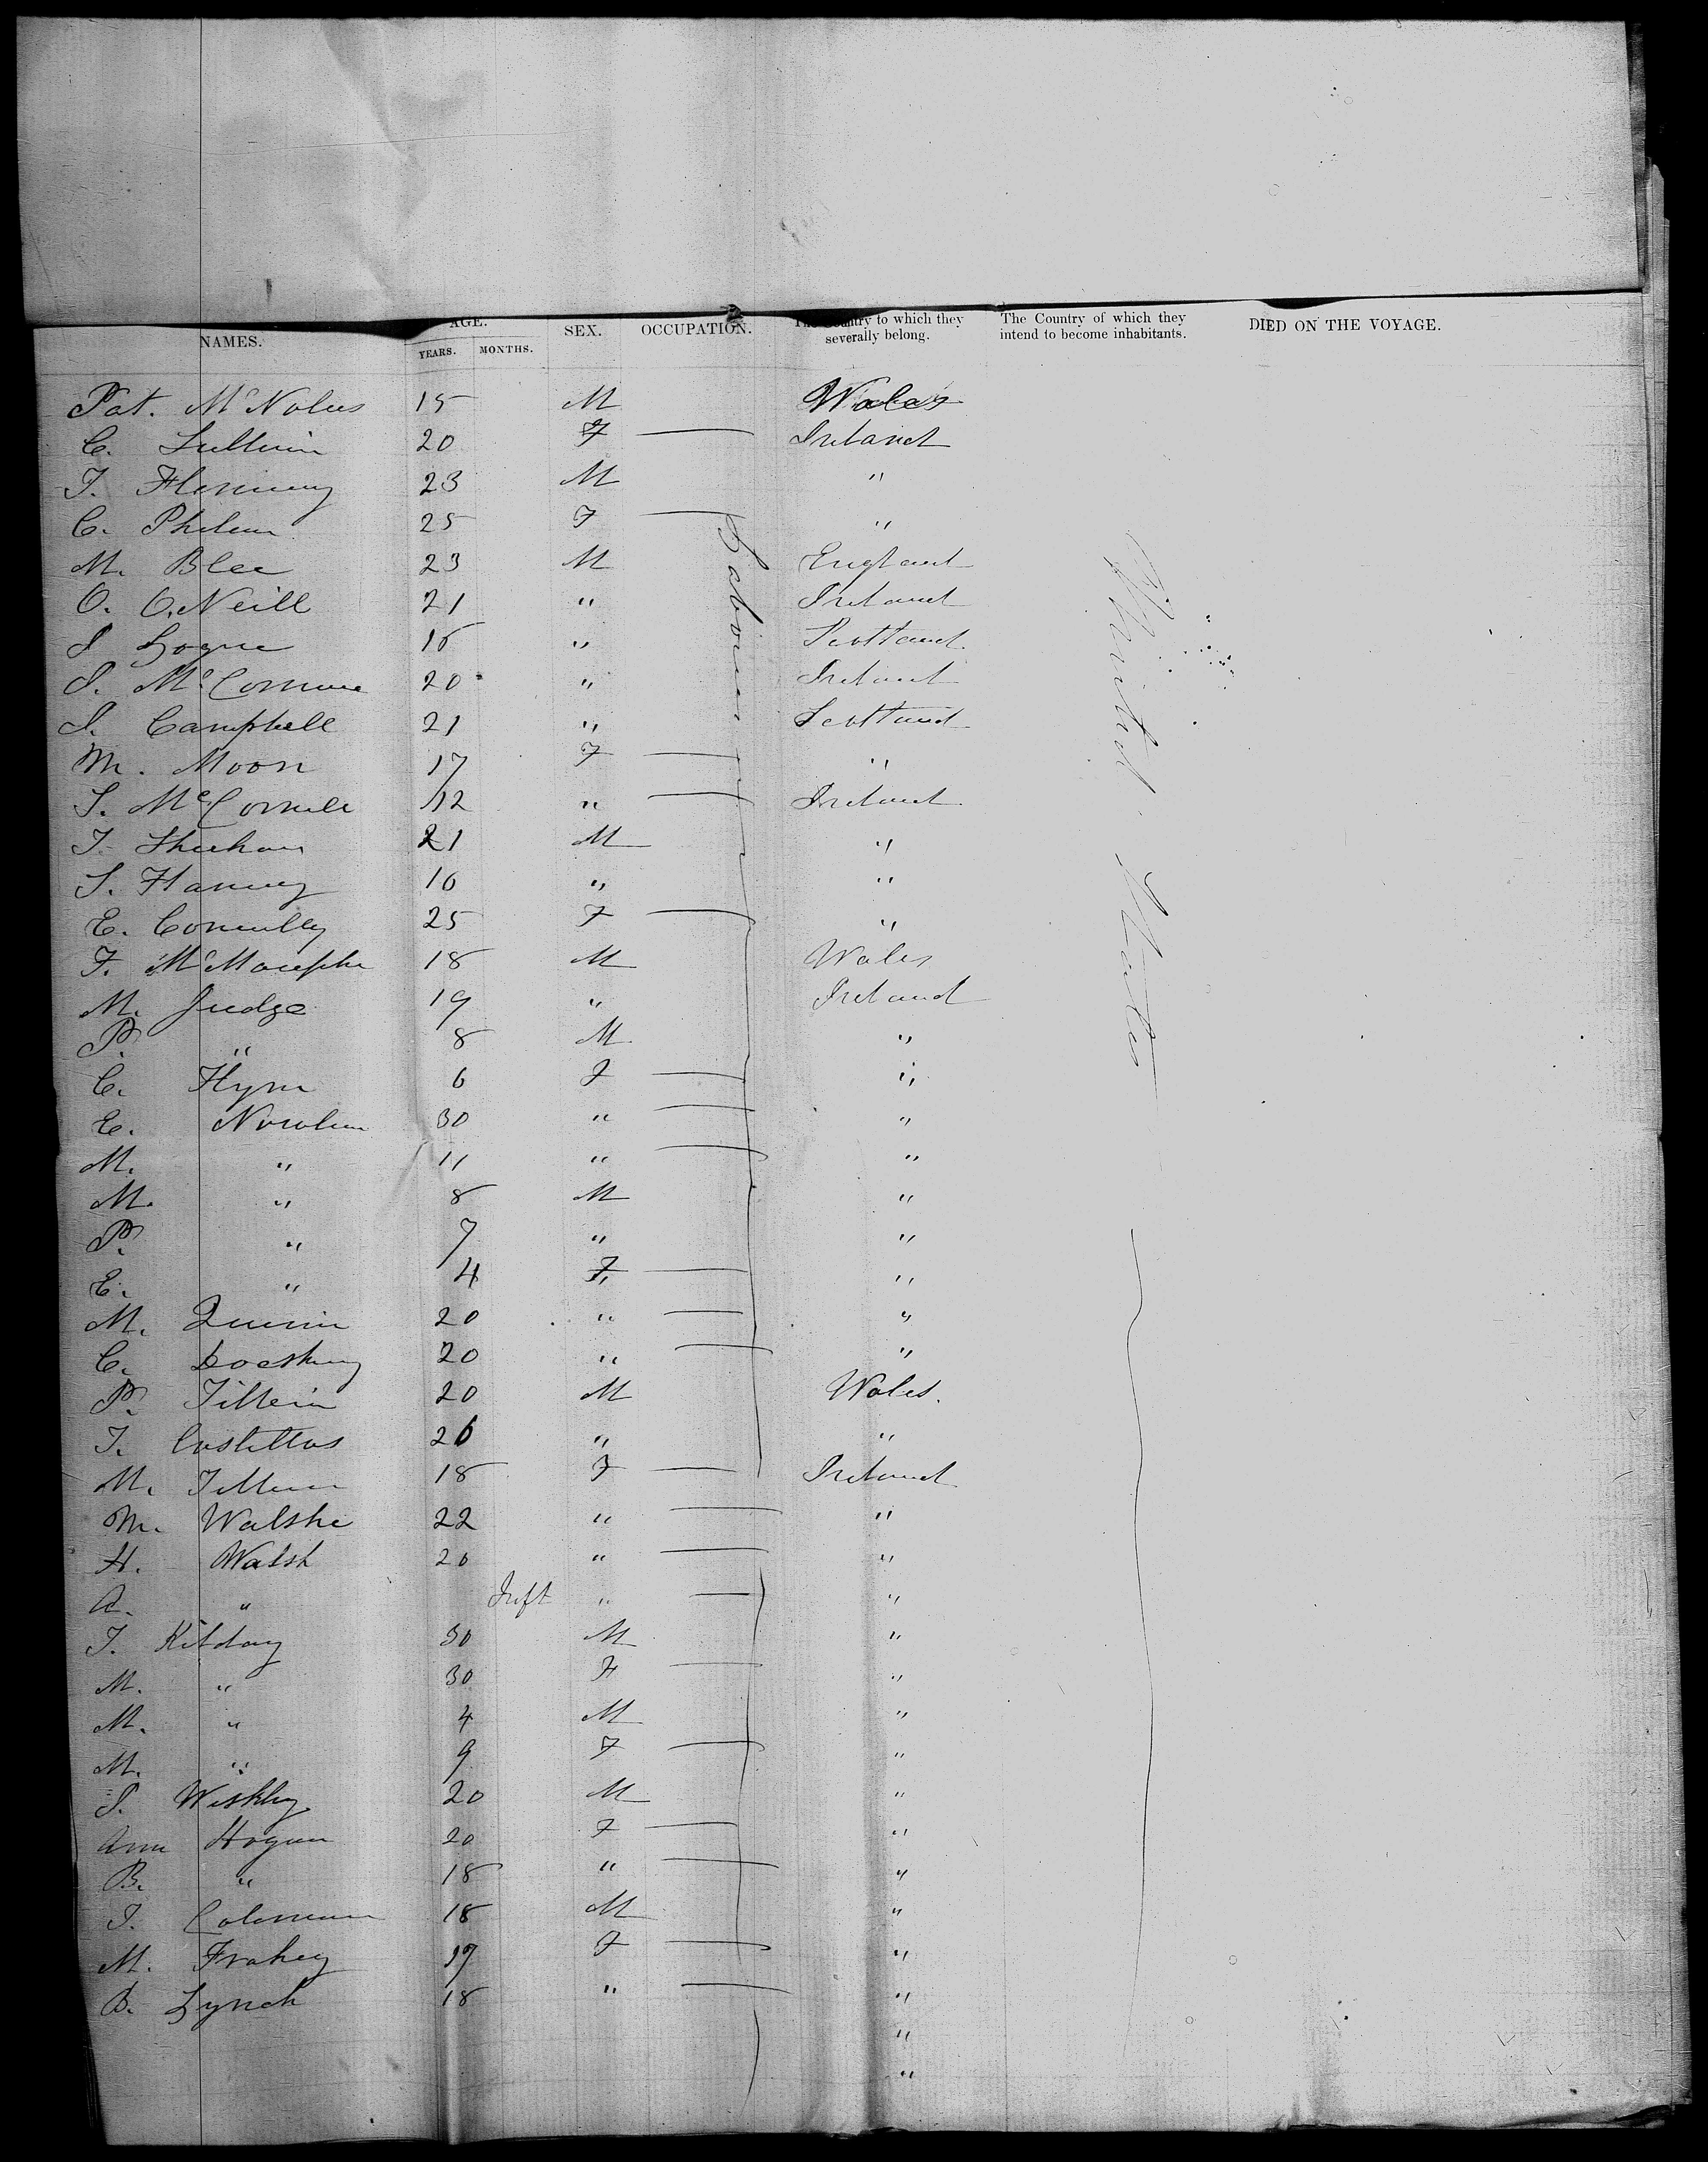 NAMES. AGE. YEARS. MONTHS. SEX. OCCUPATION. The Country to which they severally belong. The Country of which they intend to become inhabitants. DIED ON THE VOYAGE.
Pat. 15 M Wales
C. 20 F — Ireland
T. Flemming 23 M "
C. 25 F — "
M. Blee 23 M England
O. O'Neill 21 " Ireland
16 " Scotland
20 " Ireland
Campbell 21 " Scotland
M. Moon 17 F — "
12 " — Ireland
T. Sheehan 21 M "
16 " "
E. Connolly 25 F — "
F. 18 M Wales
M. Judge 19 " Ireland
P. " 8 M "
C. Flynn 6 F — "
E. Nowlan 30 " — "
M. " 11 " — "
M. " 8 M "
P. " 7 " "
E. " 4 F — "
M. Quinn 20 " — "
C. 20 " — "
P. 20 M Wales.
T. 26 " "
M. 18 F — Ireland
M. Walshe 22 " — "
H. Walsh 20 " — "
A. " Inft " — "
T. Kilday 30 M "
M. " 30 F — "
M. " 4 M "
M. " 9 F — "
20 M "
Ann Hogan 20 F — "
B. " 18 " — "
T. Coleman 18 M "
M. Frahey 17 F — "
B. Lynch 18 " — "
"
"
Labourer
United States